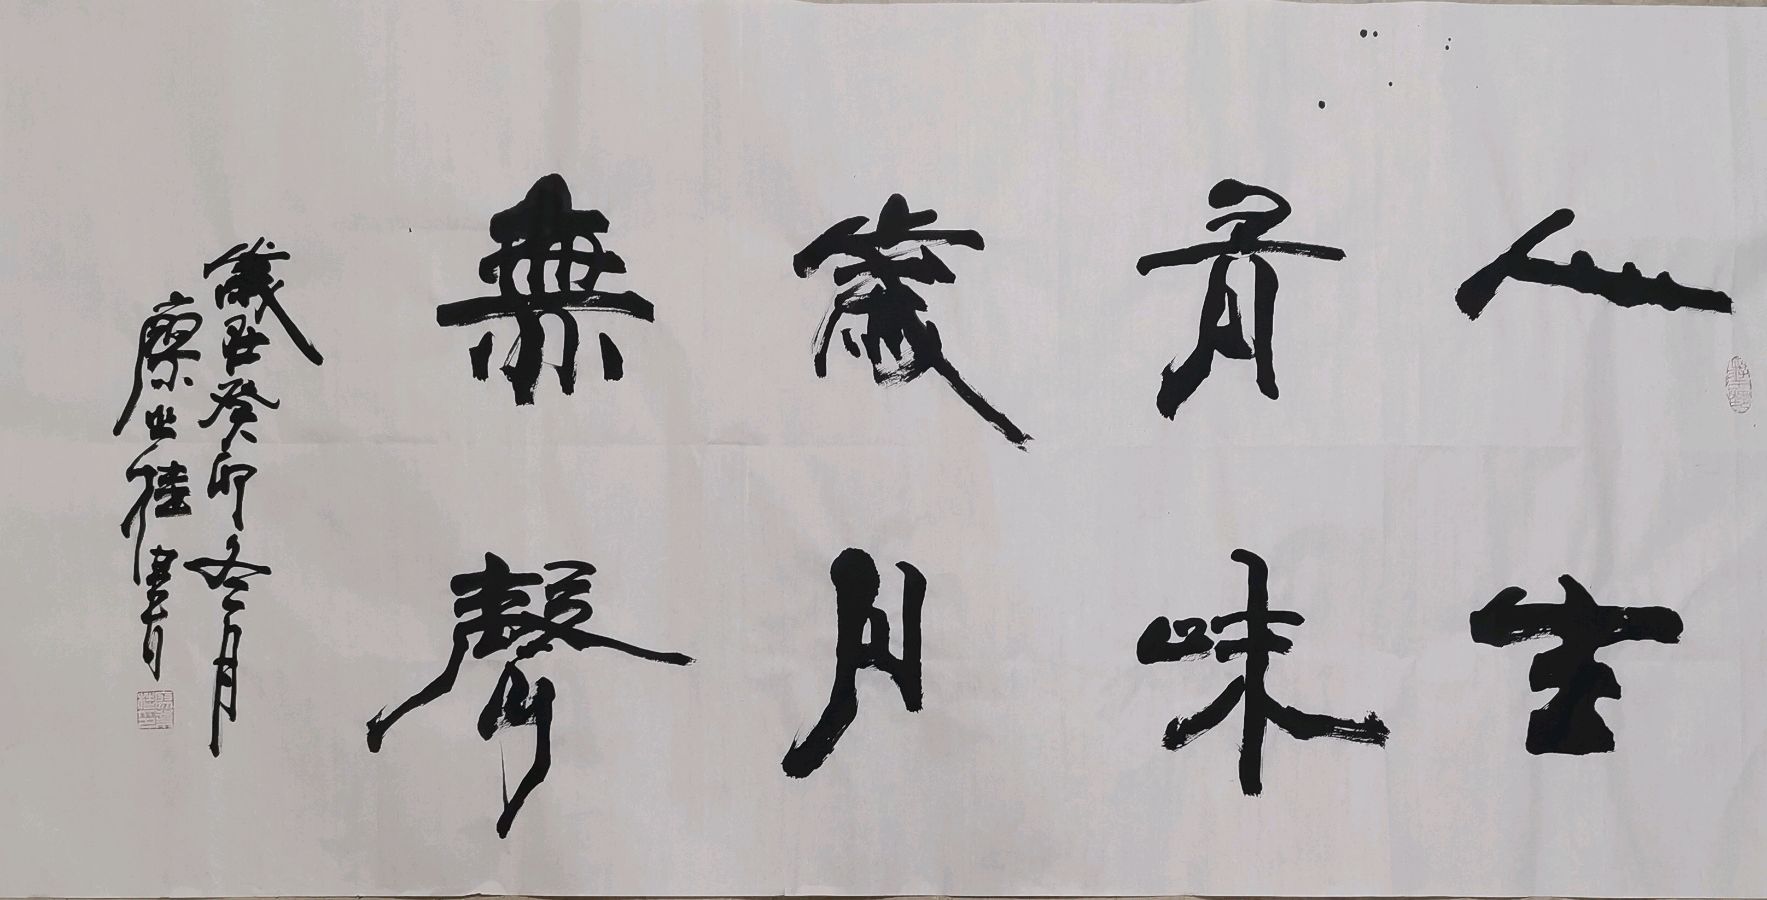 人生
有味
歲月
無聲
歲在癸卯冬月
廖世桂書